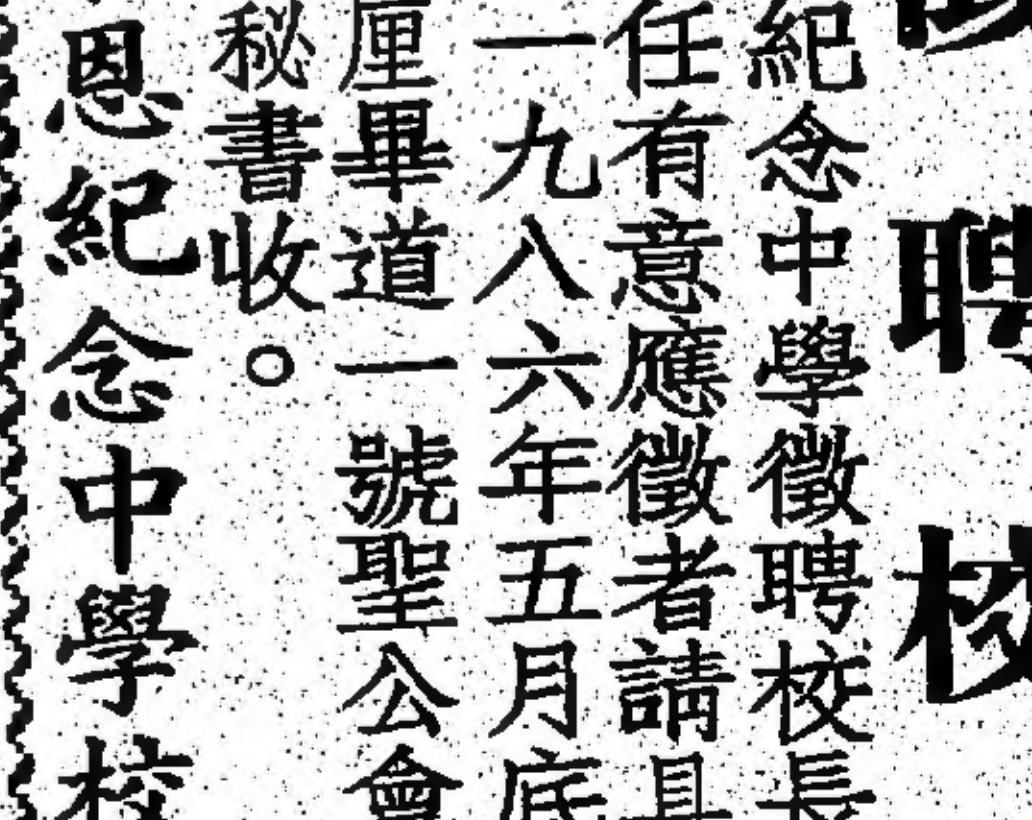 聘校
紀念中學徵聘校長
任有意應徵者請具
一九八六年五月底
厘畢道一號聖公會
秘書收。
恩紀念中學校